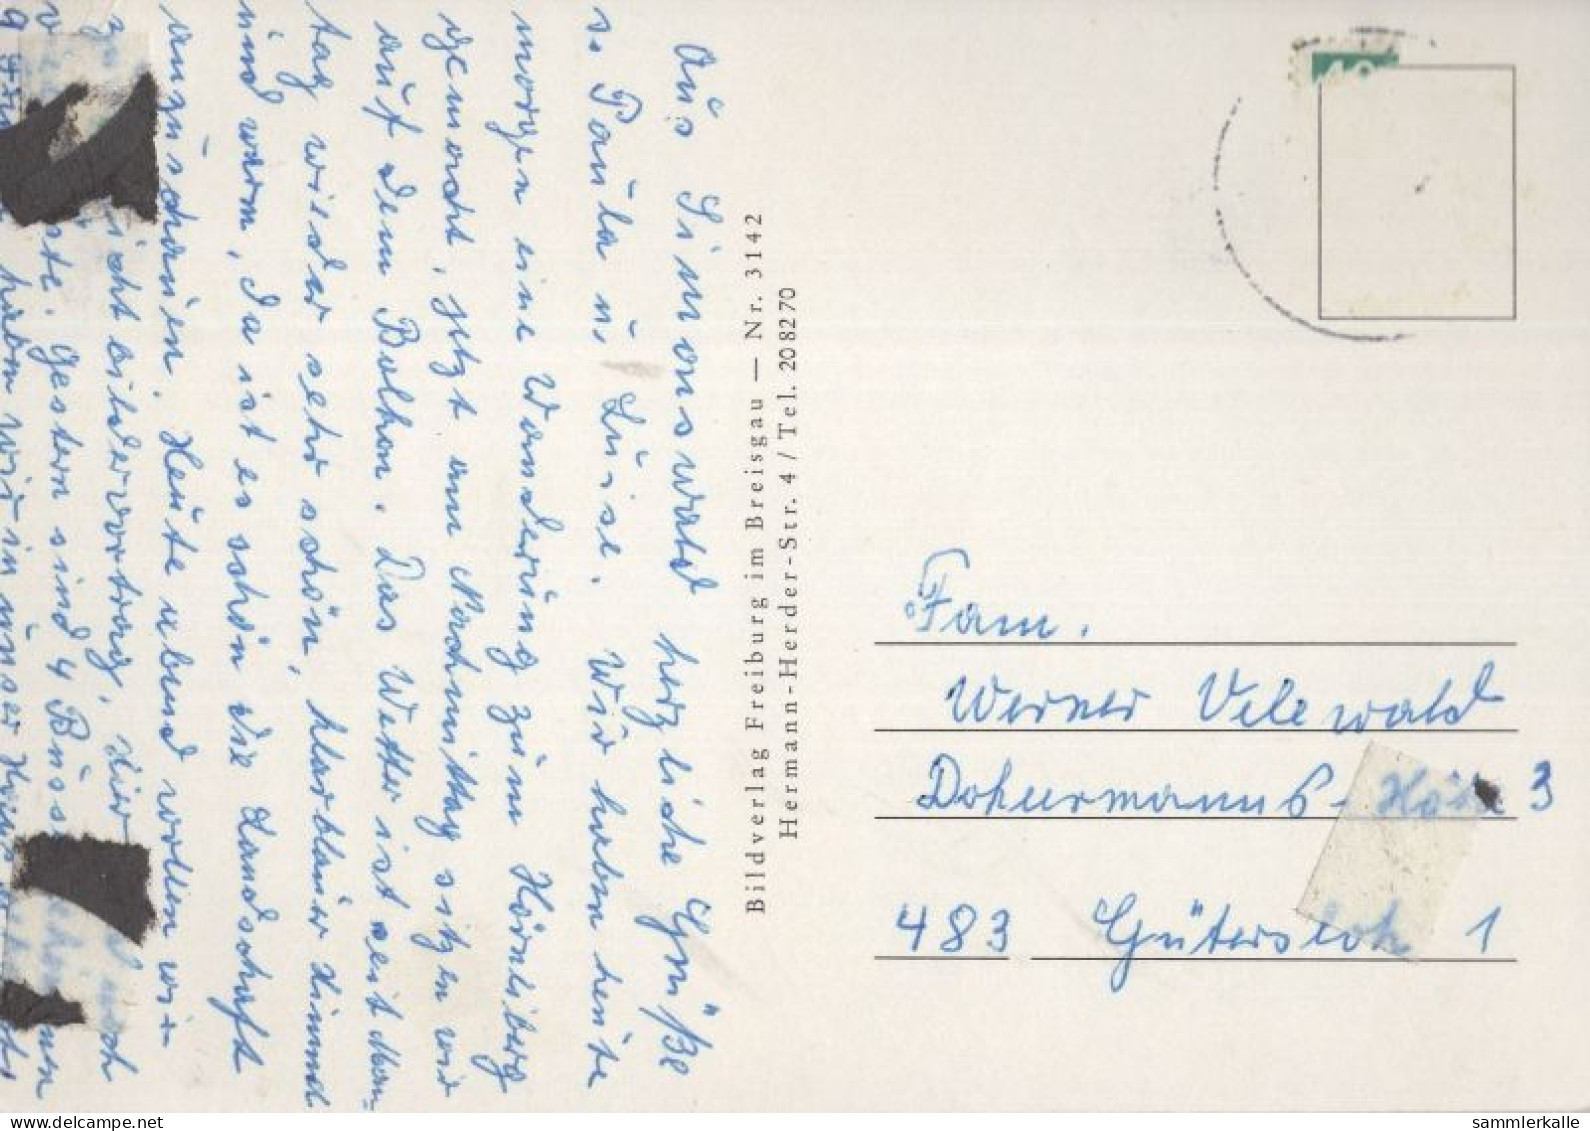 Aus Simonswald herzliche Grüße
s. Paula u. Luise. Wir haben heute
morgen eine Wanderung zum Hörnliberg
gemacht, jetzt am Nachmittag sitzen wir
auf dem Balkon. Das Wetter ist seit Mon-
tag wieder sehr schön, klarblauer Himmel
und warm, da ist es schön die Landschaft
anzuschauen. Heute abend wollen wir
Lichtbildervortrag, hier
Gäste. Gestern sind 4 Busse
haben wir in unser Haus
Bildverlag Freiburg im Breisgau — Nr. 3142
Hermann-Herder-Str. 4 / Tel. 208270
40
Fam.
Werner Velewald
3
483 Gütersloh 1
sammlerkalle